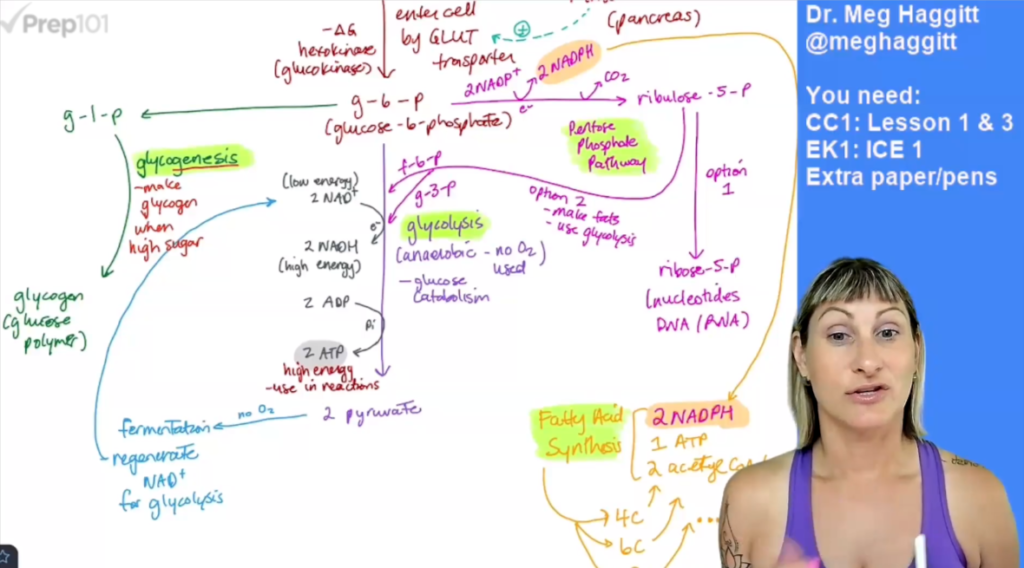 Prep101
-ΔG
hexokinase
(glucokinase)
enter cell
by GLUT
trasporter
⊕
(pancreas)
2NADP+
2 NADPH
e-
CO2
g-1-p
g-6-p
(glucose-6-phosphate)
ribulose-5-p
Pentose
Phosphate
Pathway
glycogenesis
-make
glycogen
when
high sugar
glycogen
(glucose
polymer)
(low energy)
2 NAD+
e-
2 NADH
(high energy)
2 ADP
Pi
2 ATP
high energy
-use in reactions
f-6-p
g-3-p
glycolysis
(anaerobic - no O2
used)
- glucose
catabolism
option 2
- make fats
- use glycolysis
option
1
ribose-5-p
(nucleotides
DNA/RNA)
2 pyruvate
no O2
fermentation
- regenerate
NAD+
for glycolysis
Fatty Acid
Synthesis
2 NADPH
1 ATP
2 acetyl
4C
6C
...
Dr. Meg Haggitt
@meghaggitt
You need:
CC1: Lesson 1 & 3
EK1: ICE 1
Extra paper/pens